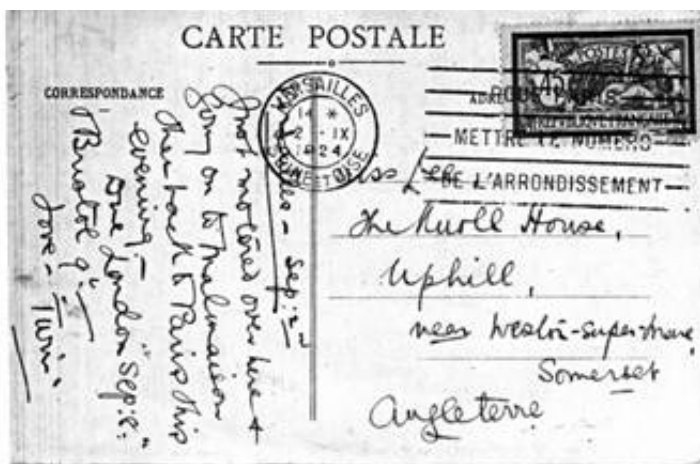 CARTE POSTALE
CORRESPONDANCE
VERSAILLES
14 *
2 - IX
1924
SEINE ET OISE
45
POSTES
POUR PARIS
METTRE LE NUMERO
DE L'ARRONDISSEMENT
Versailles - Sep: 2nd
Just motored over here &
going on to Malmaison
then back to Paris this
evening -
London Sep: 8th
Bristol 9th
Love - Twin.
Miss
The Knoll House,
Uphill,
near Weston-super-Mare,
Somerset
Angleterre